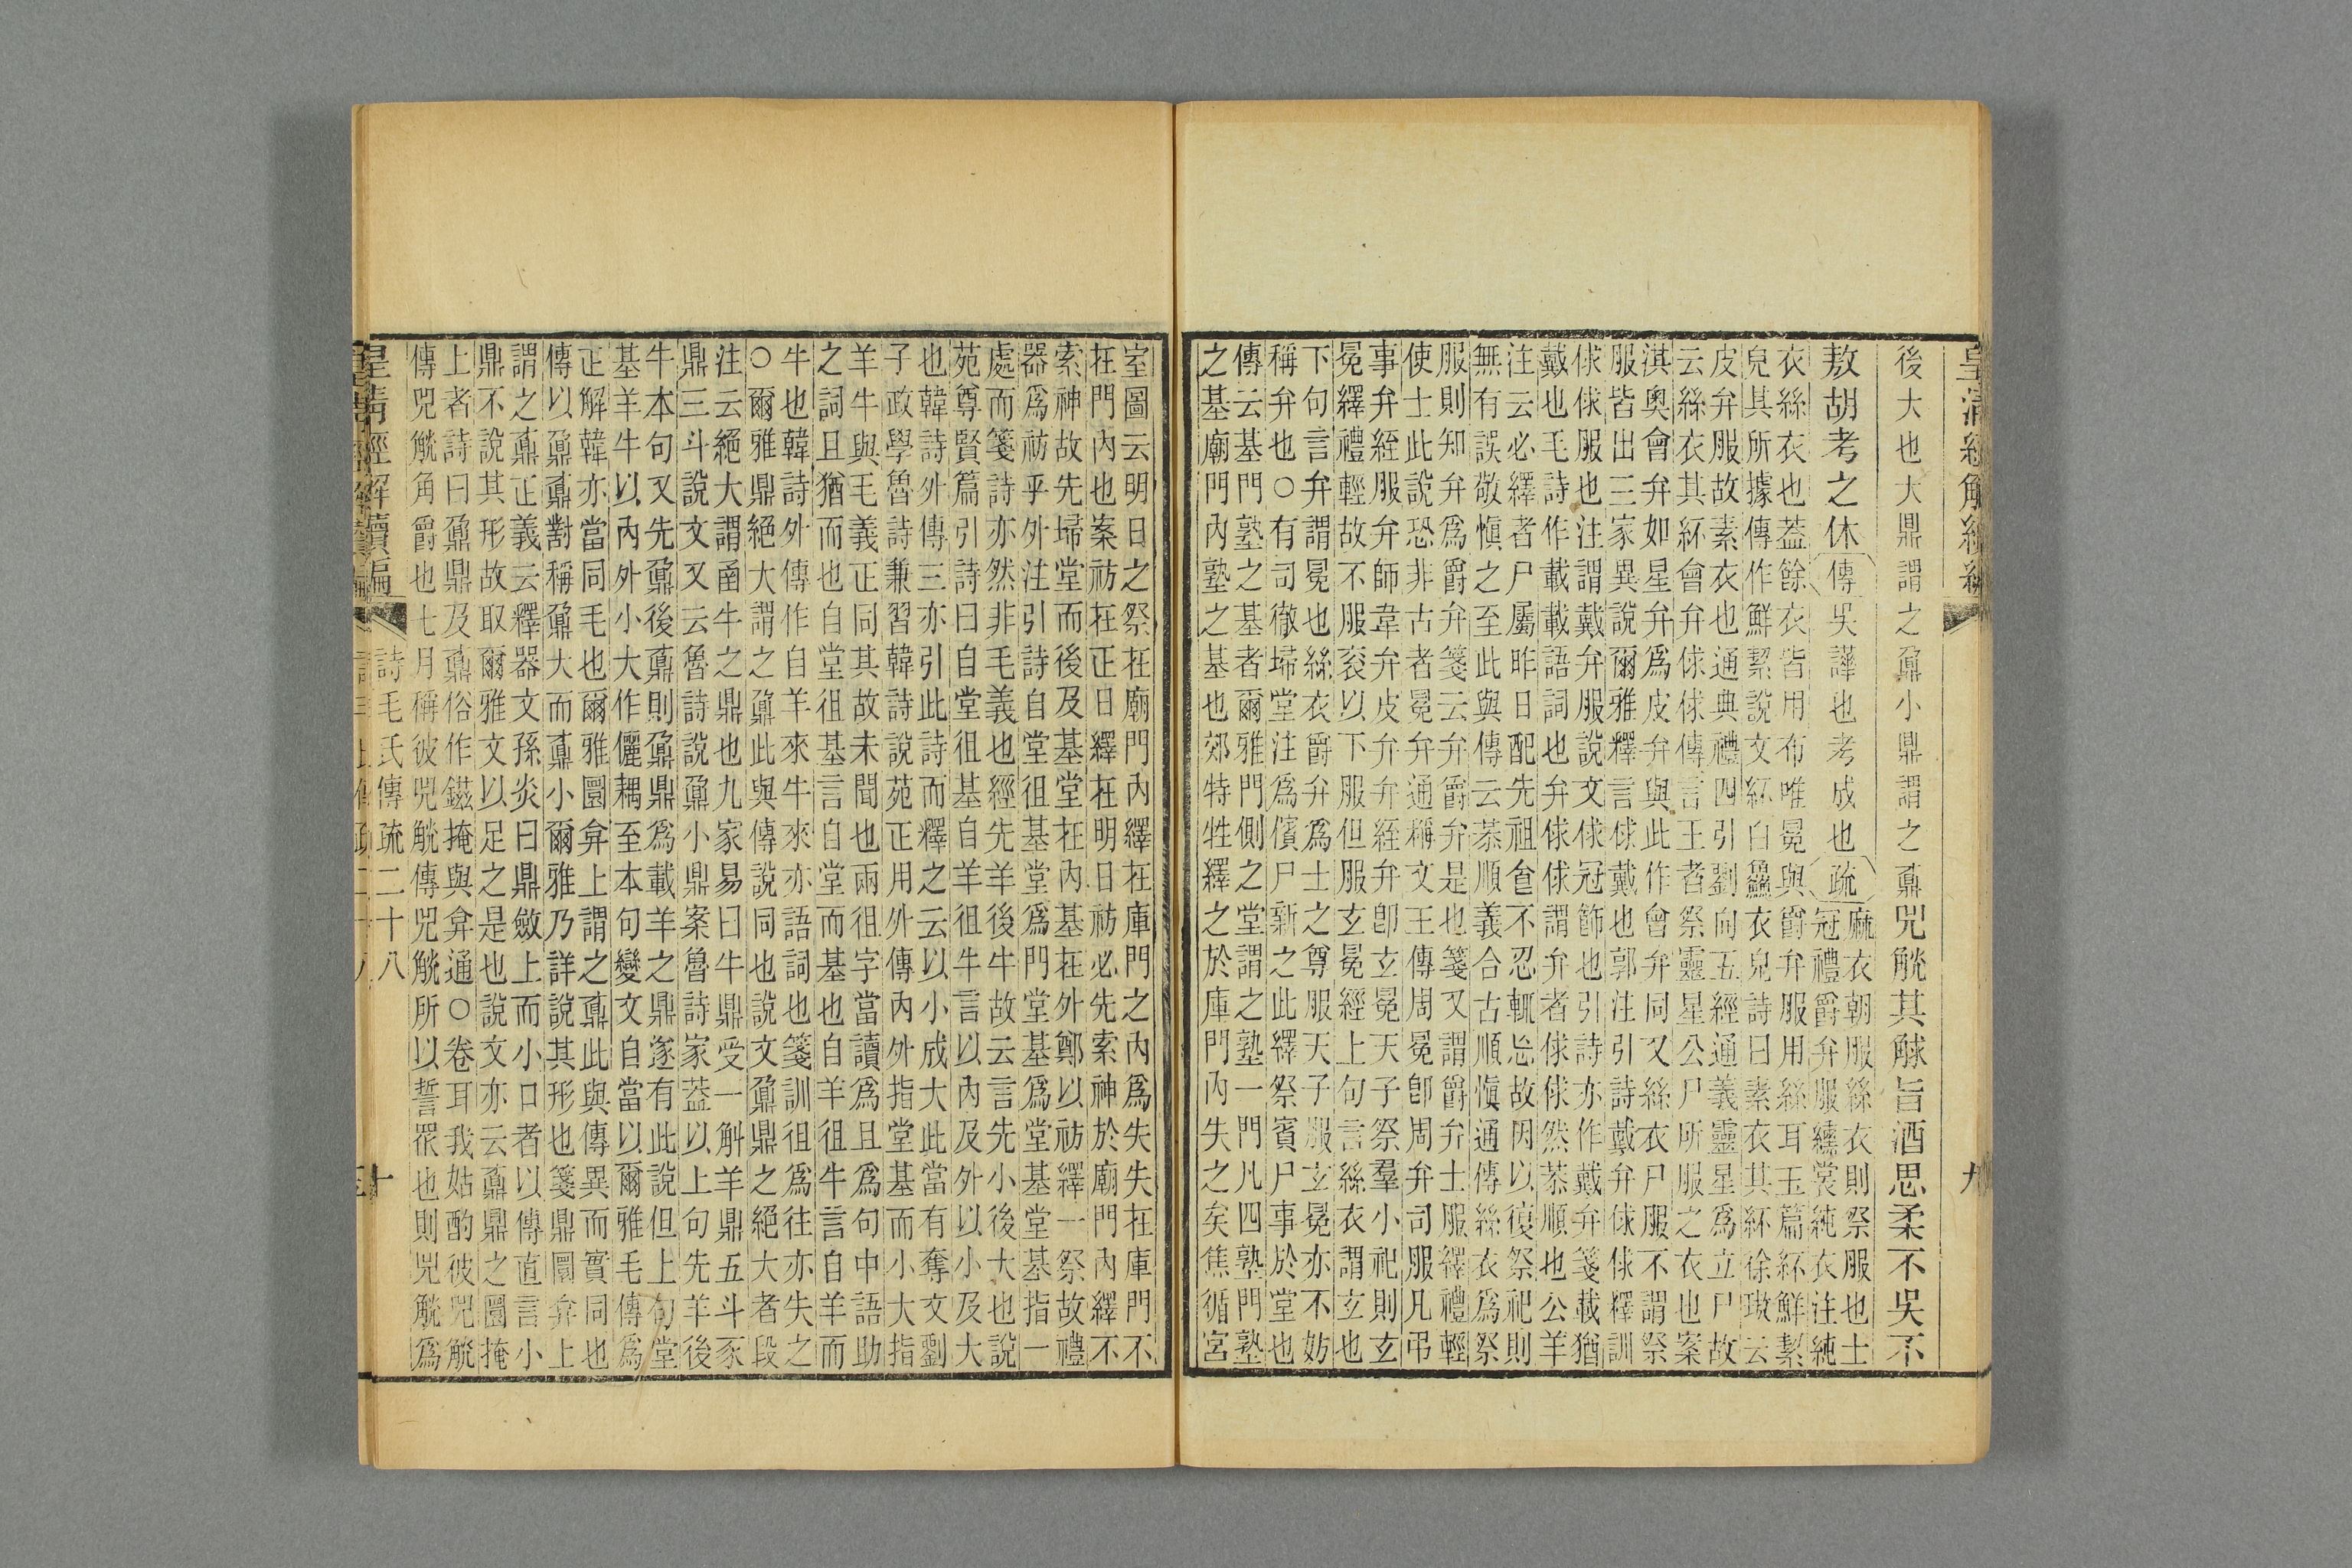 皇清經解續編
九
後大也大鼎謂之鼐小鼎謂之鼒兕觥其觩旨酒思柔不吳不
敖胡考之休傳吳譁也考成也疏麻衣朝服絲衣則祭服也士
冠禮爵弁服纁裳純衣注純
衣絲衣也葢餘衣皆用布唯冕與爵弁服用絲耳玉篇紑鮮絜
皃其所據傳作鮮絜說文紑白鱻衣皃詩曰素衣其紑徐璈云
皮弁服故素衣也通典禮四引劉向五經通義靈星爲立尸故
云絲衣其紑會弁俅俅傳言王者祭靈星公尸所服之衣也案
淇奧會弁如星弁爲皮弁與此作會弁同又絲衣尸服不謂祭
服皆出三家異說爾雅釋言俅戴也郭注引詩戴弁俅俅釋訓
俅俅服也注謂戴弁服說文俅冠飾也引詩亦作戴弁箋載猶
戴也毛詩作載載語詞也弁俅俅謂弁者俅俅然恭順也公羊
注云必繹者尸屬昨日配先祖食不忍輒忘故因以復祭祀則
無有誤敬愼之至此與傳云恭順義合古順愼通傳絲衣爲祭
服則知弁爲爵弁箋云弁爵弁是也箋又謂爵弁士服繹禮輕
使士此說恐非古者冕弁通稱文王傳周冕卽周弁司服凡弔
事弁絰服弁師韋弁皮弁弁絰弁卽玄冕天子祭羣小祀則玄
冕繹禮輕故不服衮以下服但服玄冕經上句言絲衣謂玄也
下句言弁謂冕也絲衣爵弁爲士之尊服天子服玄冕亦不妨
稱弁也○有司徹埽堂注爲儐尸新之此繹祭賓尸事於堂也
傳云基門塾之基者爾雅門側之堂謂之塾一門凡四塾門塾
之基廟門內塾之基也郊特牲繹之於庫門內失之矣焦循宮
室圖云明日之祭在廟門內繹在庫門之內爲失失在庫門不
在門內也案祊在正日繹在明日祊必先索神於廟門內繹不
索神故先埽堂而後及基堂在內基在外鄭以祊繹一祭故禮
器爲祊乎外注引詩自堂徂基堂爲門堂基爲堂基堂基指一
處而箋詩亦然非毛義也經先羊後牛故云言先小後大也說
苑尊賢篇引詩曰自堂徂基自羊徂牛言以內及外以小及大
也韓詩外傳三亦引此詩而釋之云以小成大此當有奪文劉
子政學魯詩兼習韓詩說苑正用外傳內外指堂基而小大指
羊牛與毛義正同其故未聞也兩徂字當讀爲且爲句中語助
之詞且猶而也自堂徂基言自堂而基也自羊徂牛言自羊而
牛也韓詩外傳作自羊來牛來亦語詞也箋訓徂爲往亦失之
○爾雅鼎絕大謂之鼐此與傳說同也說文鼐鼎之絕大者段
注云絕大謂函牛之鼎也九家易曰牛鼎受一斛羊鼎五斗豕
鼎三斗說文又云魯詩說鼐小鼎案魯詩家葢以上句先羊後
牛本句又先鼐後鼒則鼐鼎爲載羊之鼎遂有此說但上句堂
基羊牛以內外小大作儷耦至本句變文自當以爾雅毛傳爲
正解韓亦當同毛也爾雅圜弇上謂之鼒此與傳異而實同也
傳以鼐鼒對稱鼐大而鼒小爾雅乃詳說其形也箋鼎圜弇上
謂之鼒正義云釋器文孫炎曰鼎斂上而小口者以傳直言小
鼎不說其形故取爾雅文以足之是也說文亦云鼒鼎之圜掩
上者詩曰鼐鼎及鼒俗作鎡掩與弇通○卷耳我姑酌彼兕觥
傳兕觥角爵也七月稱彼兕觥傳兕觥所以誓衆也則兕觥爲
皇清經解續編
詩毛氏傳疏二十八
十